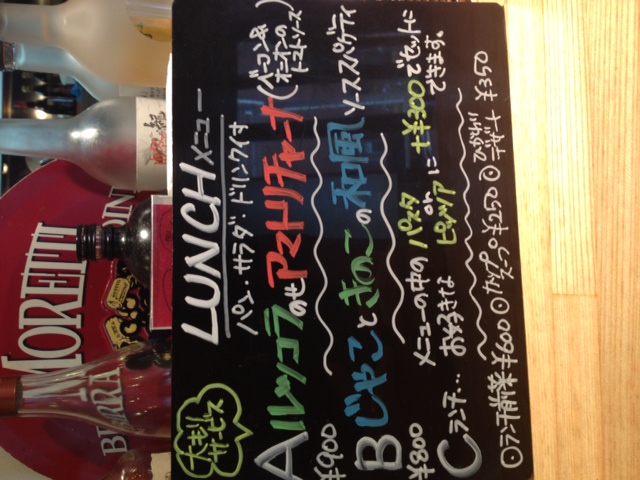 MORETTI
BIRRA
大もり
サービス
LUNCHメニュー
パン・サラダ・ドリンク付
Aルッコラのせアマトリチャーナ(ベーコン&
オニオンの
トマトソース)
¥900
Bじゃこときのこの和風ソーススパゲティ
¥800
Cランチ… メニューの中の お好きな パスタ or ピッツァに +¥300でセットに
できます。
⊙ランチ前菜¥600 ⊙カップスープ¥250 ⊙ひがわりデザート ¥350